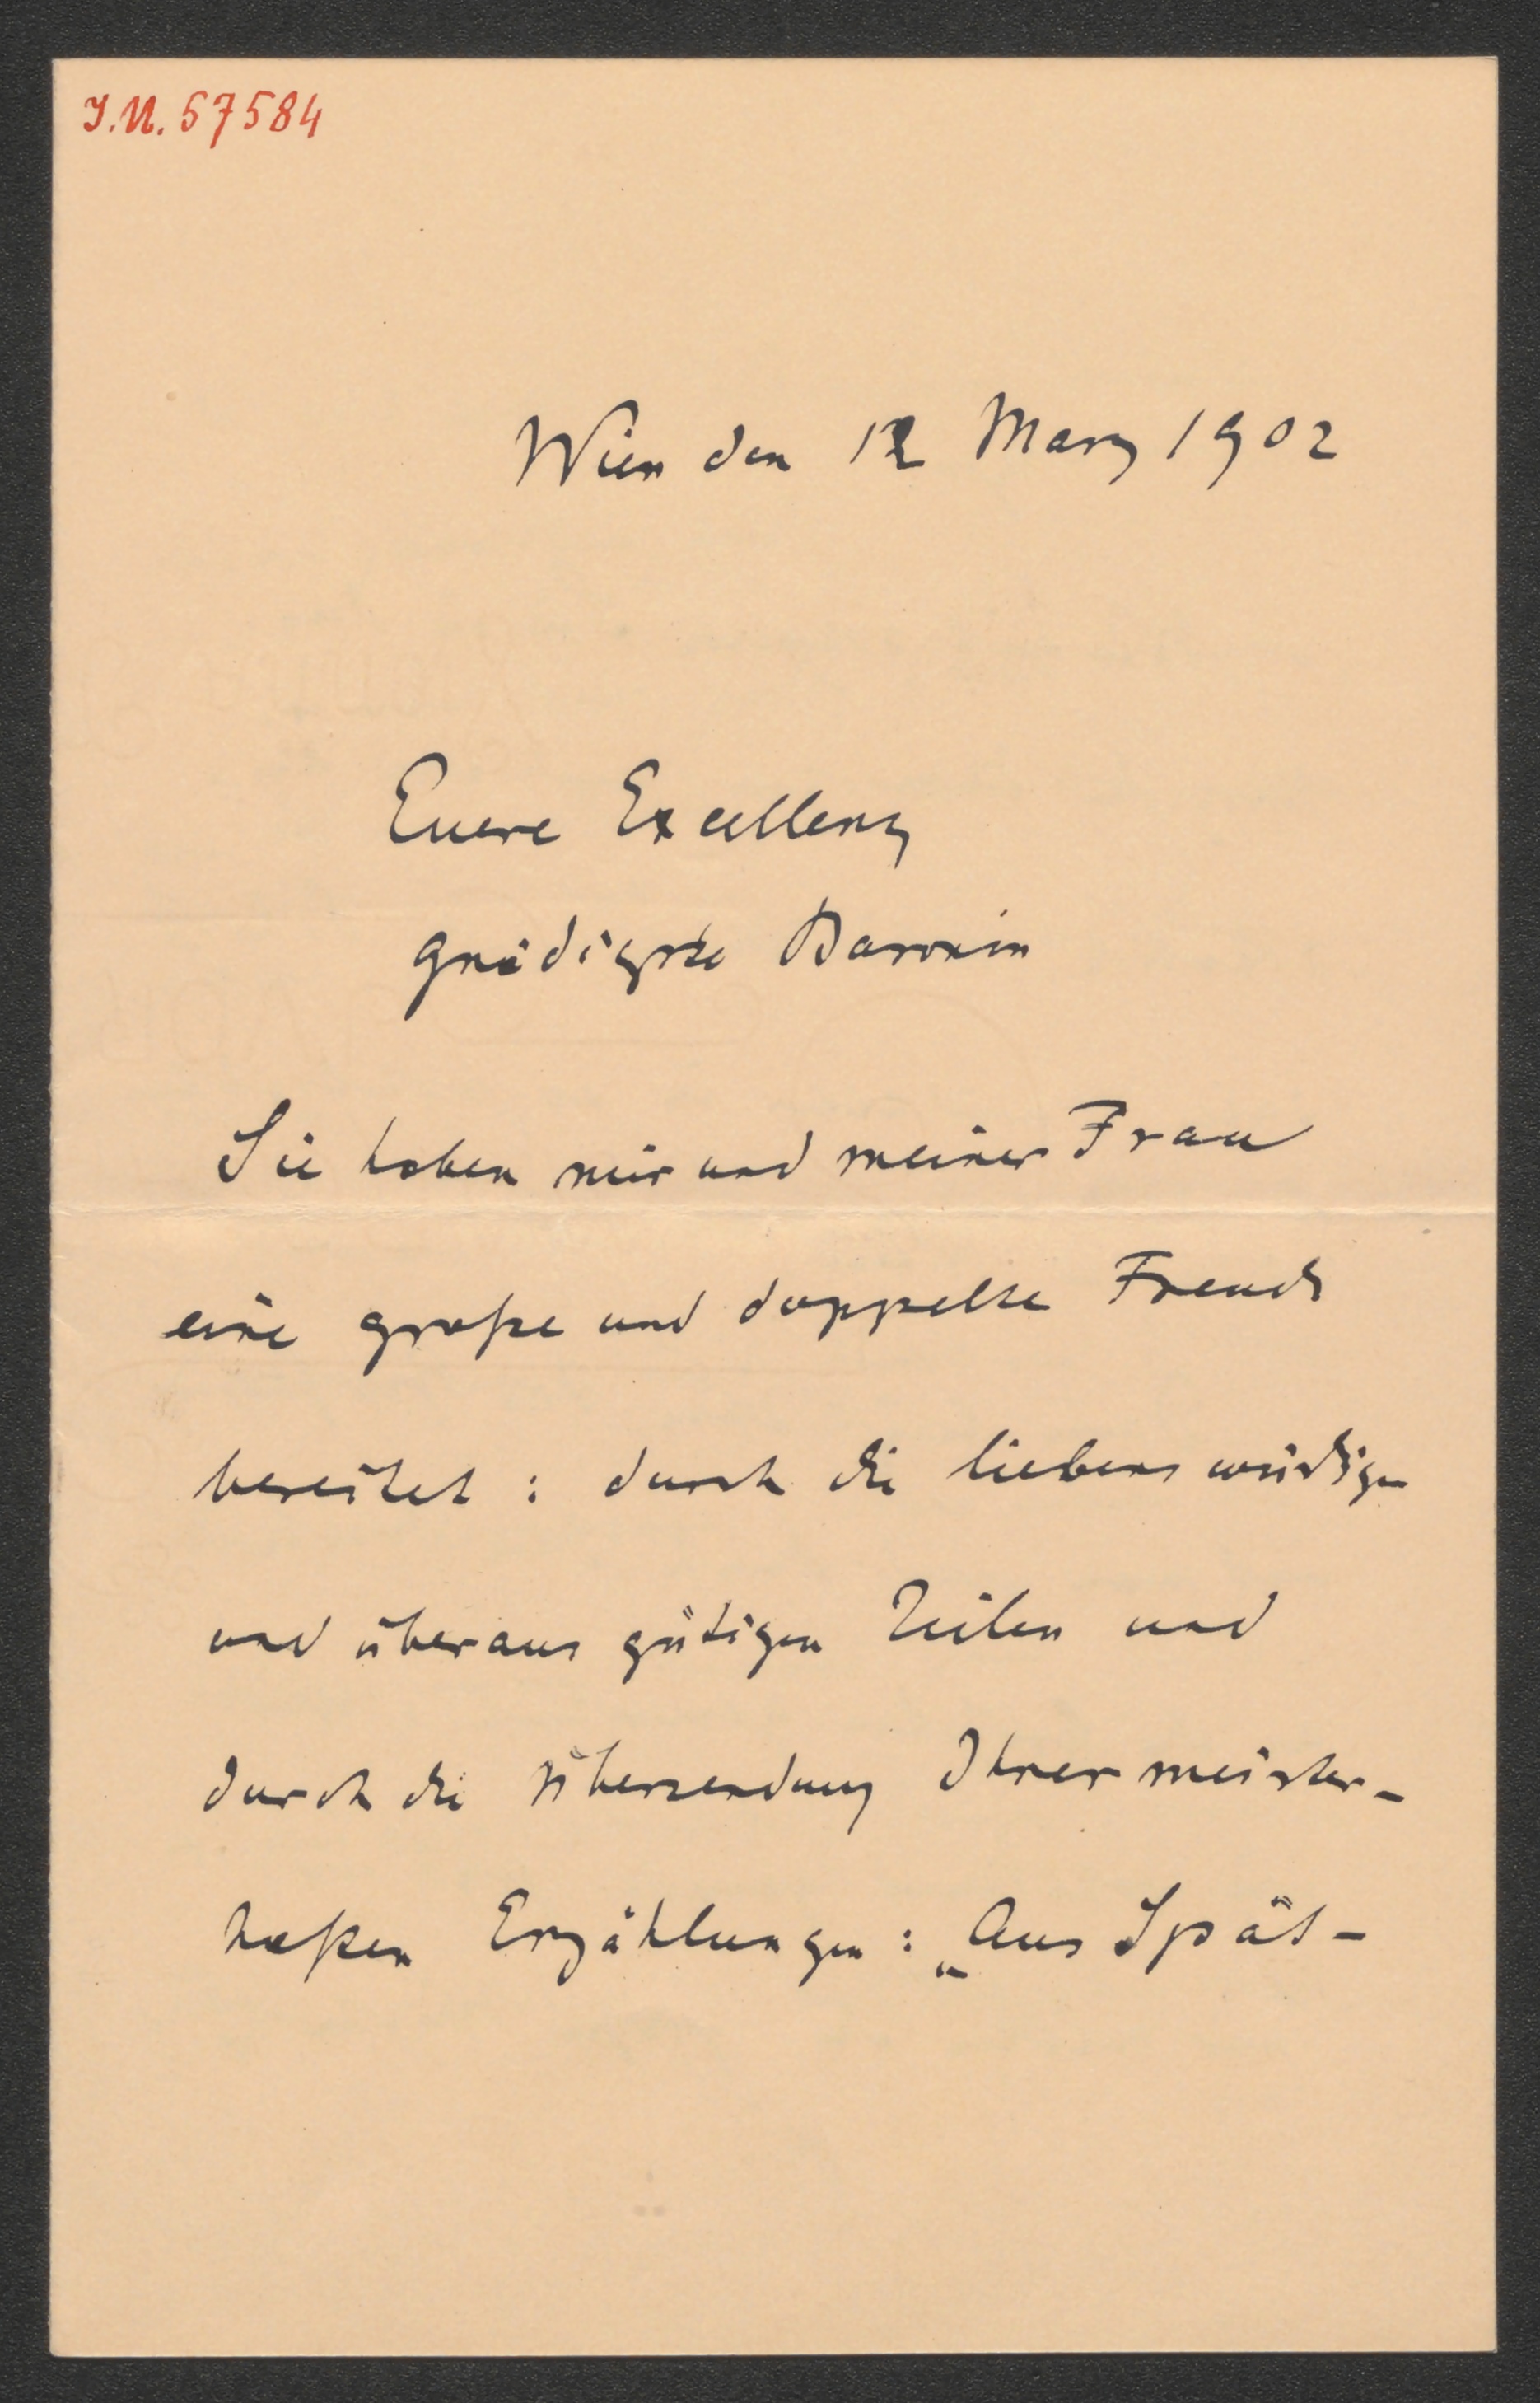 I.N. 57584
Wien den 12 März 1902
Euere Excellenz
gnädigste Baronin
Sie haben mir und meiner Frau
eine große und doppelte Freude
bereitet: durch die liebenswürdigen
und überaus gütigen Zeilen und
durch die Übersendung Ihrer meister-
haften Erzählungen: „Aus Spät-